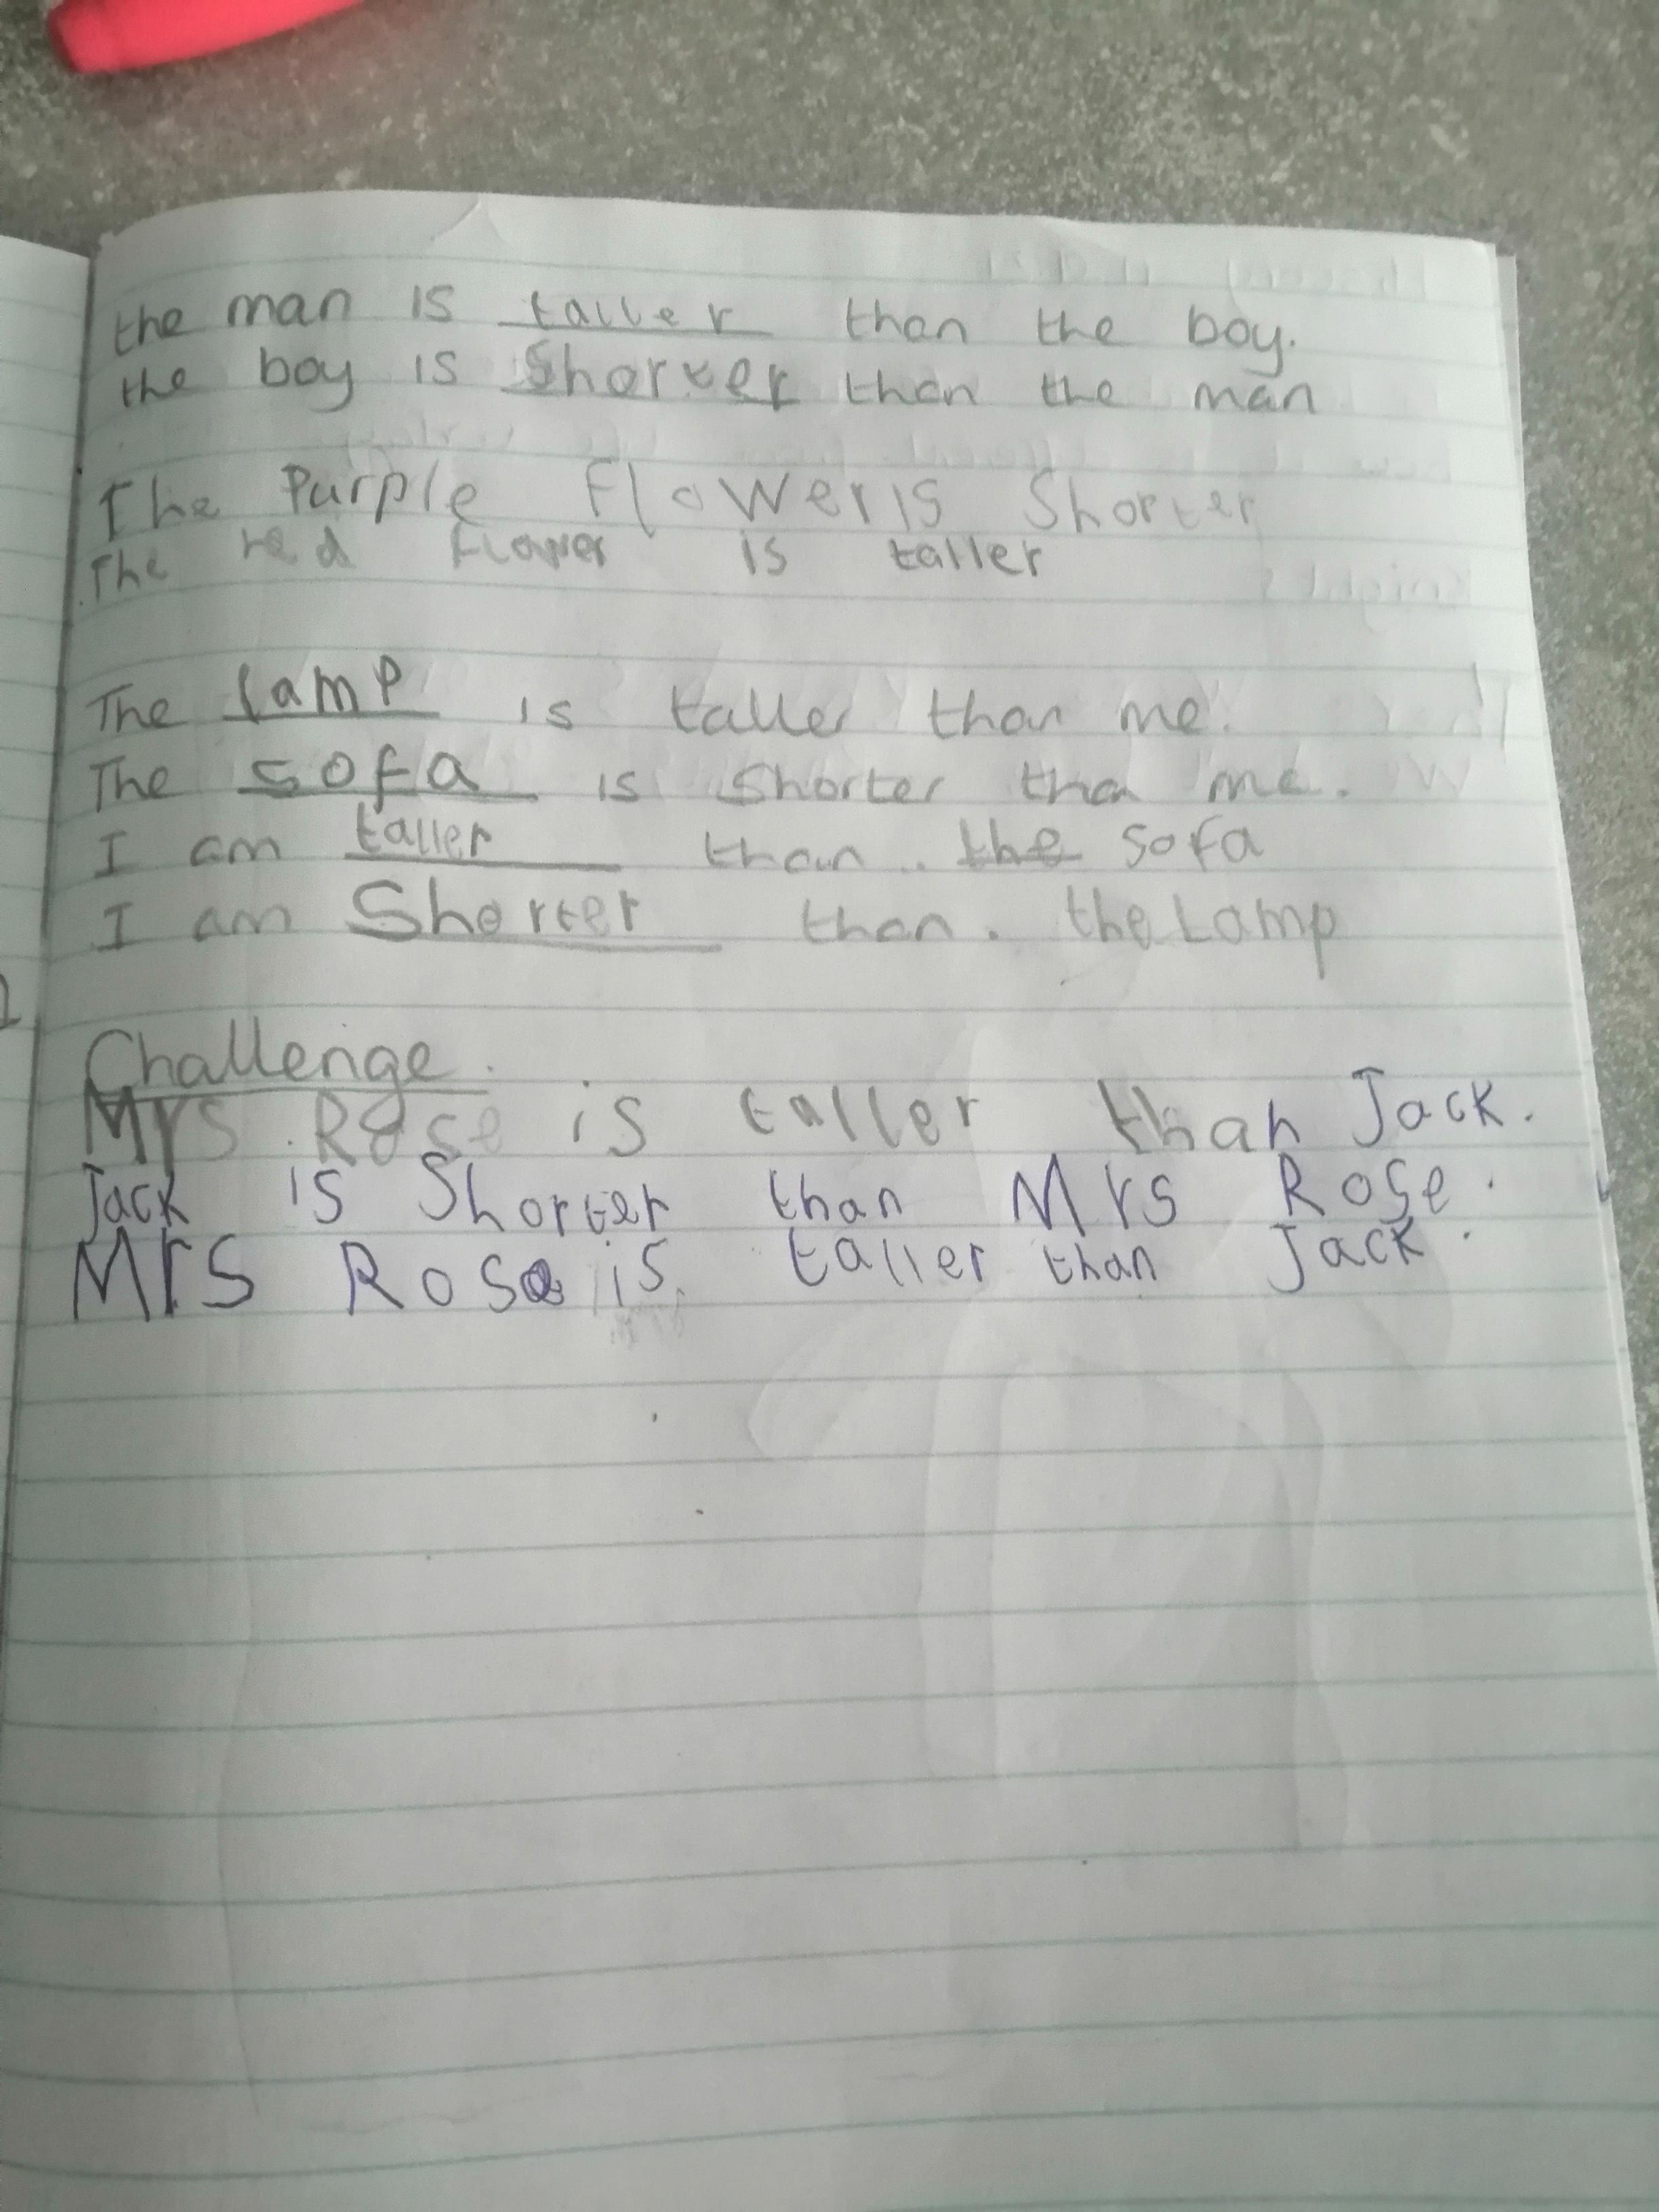 the man is taller than the boy.
the boy is Shorter than the man
The Purple Flower is Shorter
The red flower is taller
The lamp is taller than me.
The sofa is Shorter than me.
I am taller than.. the sofa
I am Shorter than. the Lamp
Challenge.
Mrs Rose is taller than Jack.
Jack is Shorter than Mrs Rose.
Mrs Rose is taller than Jack.